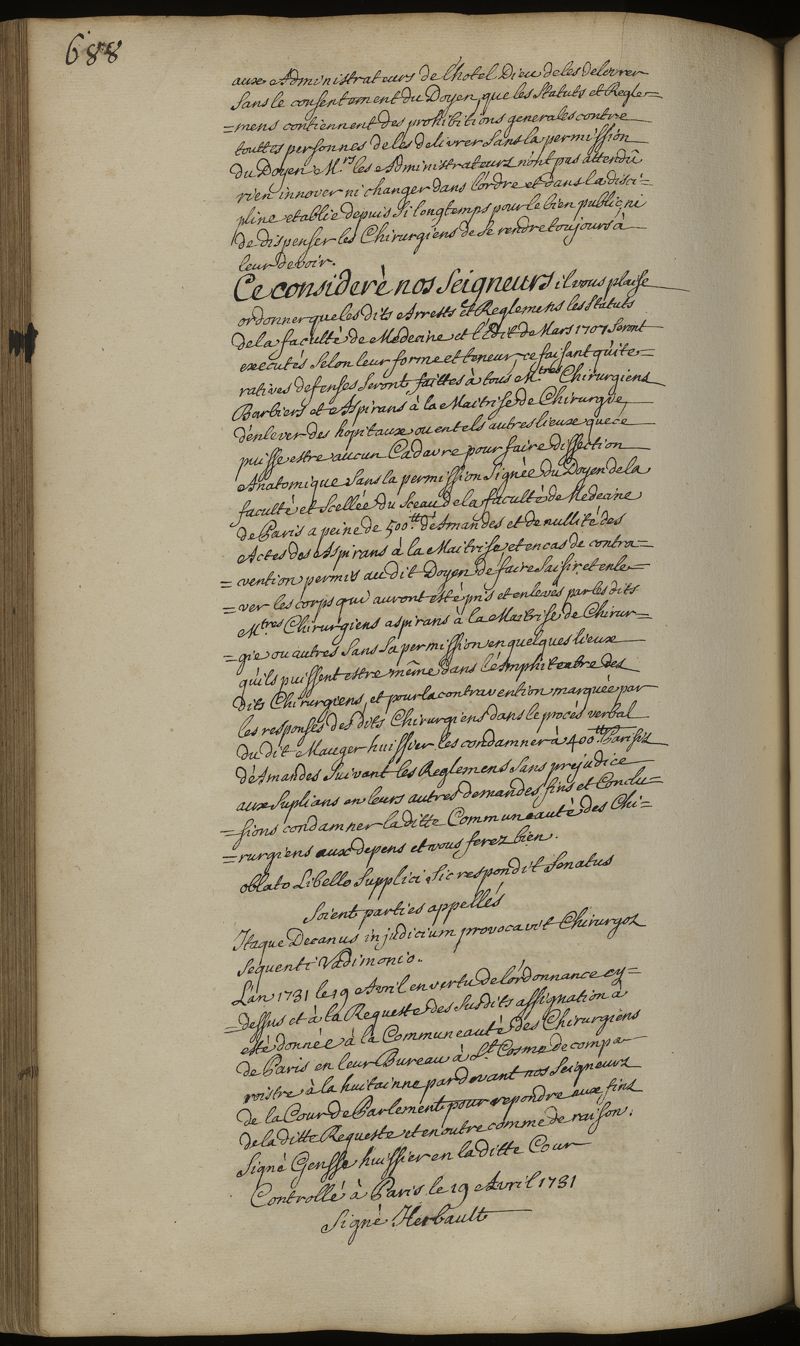 688
aux Administrateurs de l'hotel Dieu de les delivrer
Sans le consentement du Doyen, que les Statuts et Regle=
=mens contiennent des prohibitions generales contre
touttes personnes de les delivrer Sans la permission
du Doyen M.rs les Administrateurs n'ont pas attendû
rien innover ni changer dans l'ordre et dans la disci=
pline etablie depuis Si longtemps pour le bien public, ni
de dispenser les Chirurgiens de se rendre toujours à
leur devoir.
Ce consideré nos Seigneurs il vous plaise
ordonner que les dits Arrests et Reglemens les Statuts
de la faculté de Medecine et l'Edit de Mars 1707 Seront
executés Selon leur forme et teneur, ce faisant qu'ite=
ratives defenses Seront faittes à tous M.tres Chirurgiens
Barbiers et Aspirans à la Maitrise de Chirurgie,
d'enlever des hopitaux ou en tels autres lieux que ce
puisse estre aucun Cadavre pour faire dissection
Anatomique Sans la permission Signée du Doyen de la
faculté et Scellée du Sceau de la faculté de Medecine
de Paris a peine de 500.tt d'Amandes et de nullité des
Actes des Aspirans à la Maitrise et en cas de contra=
=vention permis au dit Doyen de faire Saisir et enle=
=ver les corps qui auront esté pris et enlevés par les dits
M.tres Chirurgiens aspirans à la Maitrise de Chirur=
=gie ou autres Sans Sa permission en quelques lieux
qu'ils puissent estre même dans l'Amphiteatre des
dits Chirurgiens, et pour la contravention marquée par
les responses des dits Chirurgiens dans le procés verbal
du dit Mauger huissier les condamner à 400.tt Parisis
d'Amandes Suivant les Reglemens Sans prejudice
aux Suplians en leurs autres demandes fins et Conclu=
=sions condamner la ditte Communeauté des Chi=
=rurgiens aux depens et vous ferez bien.
oblato Libello Supplici Sic respondit Senatus
Soient parties appellés
Itaque Decanus in judicium provocavit Chirurgos
Sequenti Vadimonio.
L'an 1731 le 19 Avril en vertu de l'ordonnance cy=
=dessus et à la Requeste des Susdits assignation à
esté donnée à la Communeauté des Chirurgiens
de Paris en leur Bureau à S.t Cosme de compa=
roistre à la huitainne pardevant nos Seigneurs
de la Cour de Parlement pour repondre aux fins
de la ditte Requeste et en outre comme de raison.
Signé Gensse huissier en la ditte Cour
Controllé à Paris le 19 Avril 1731
Signé Herbault